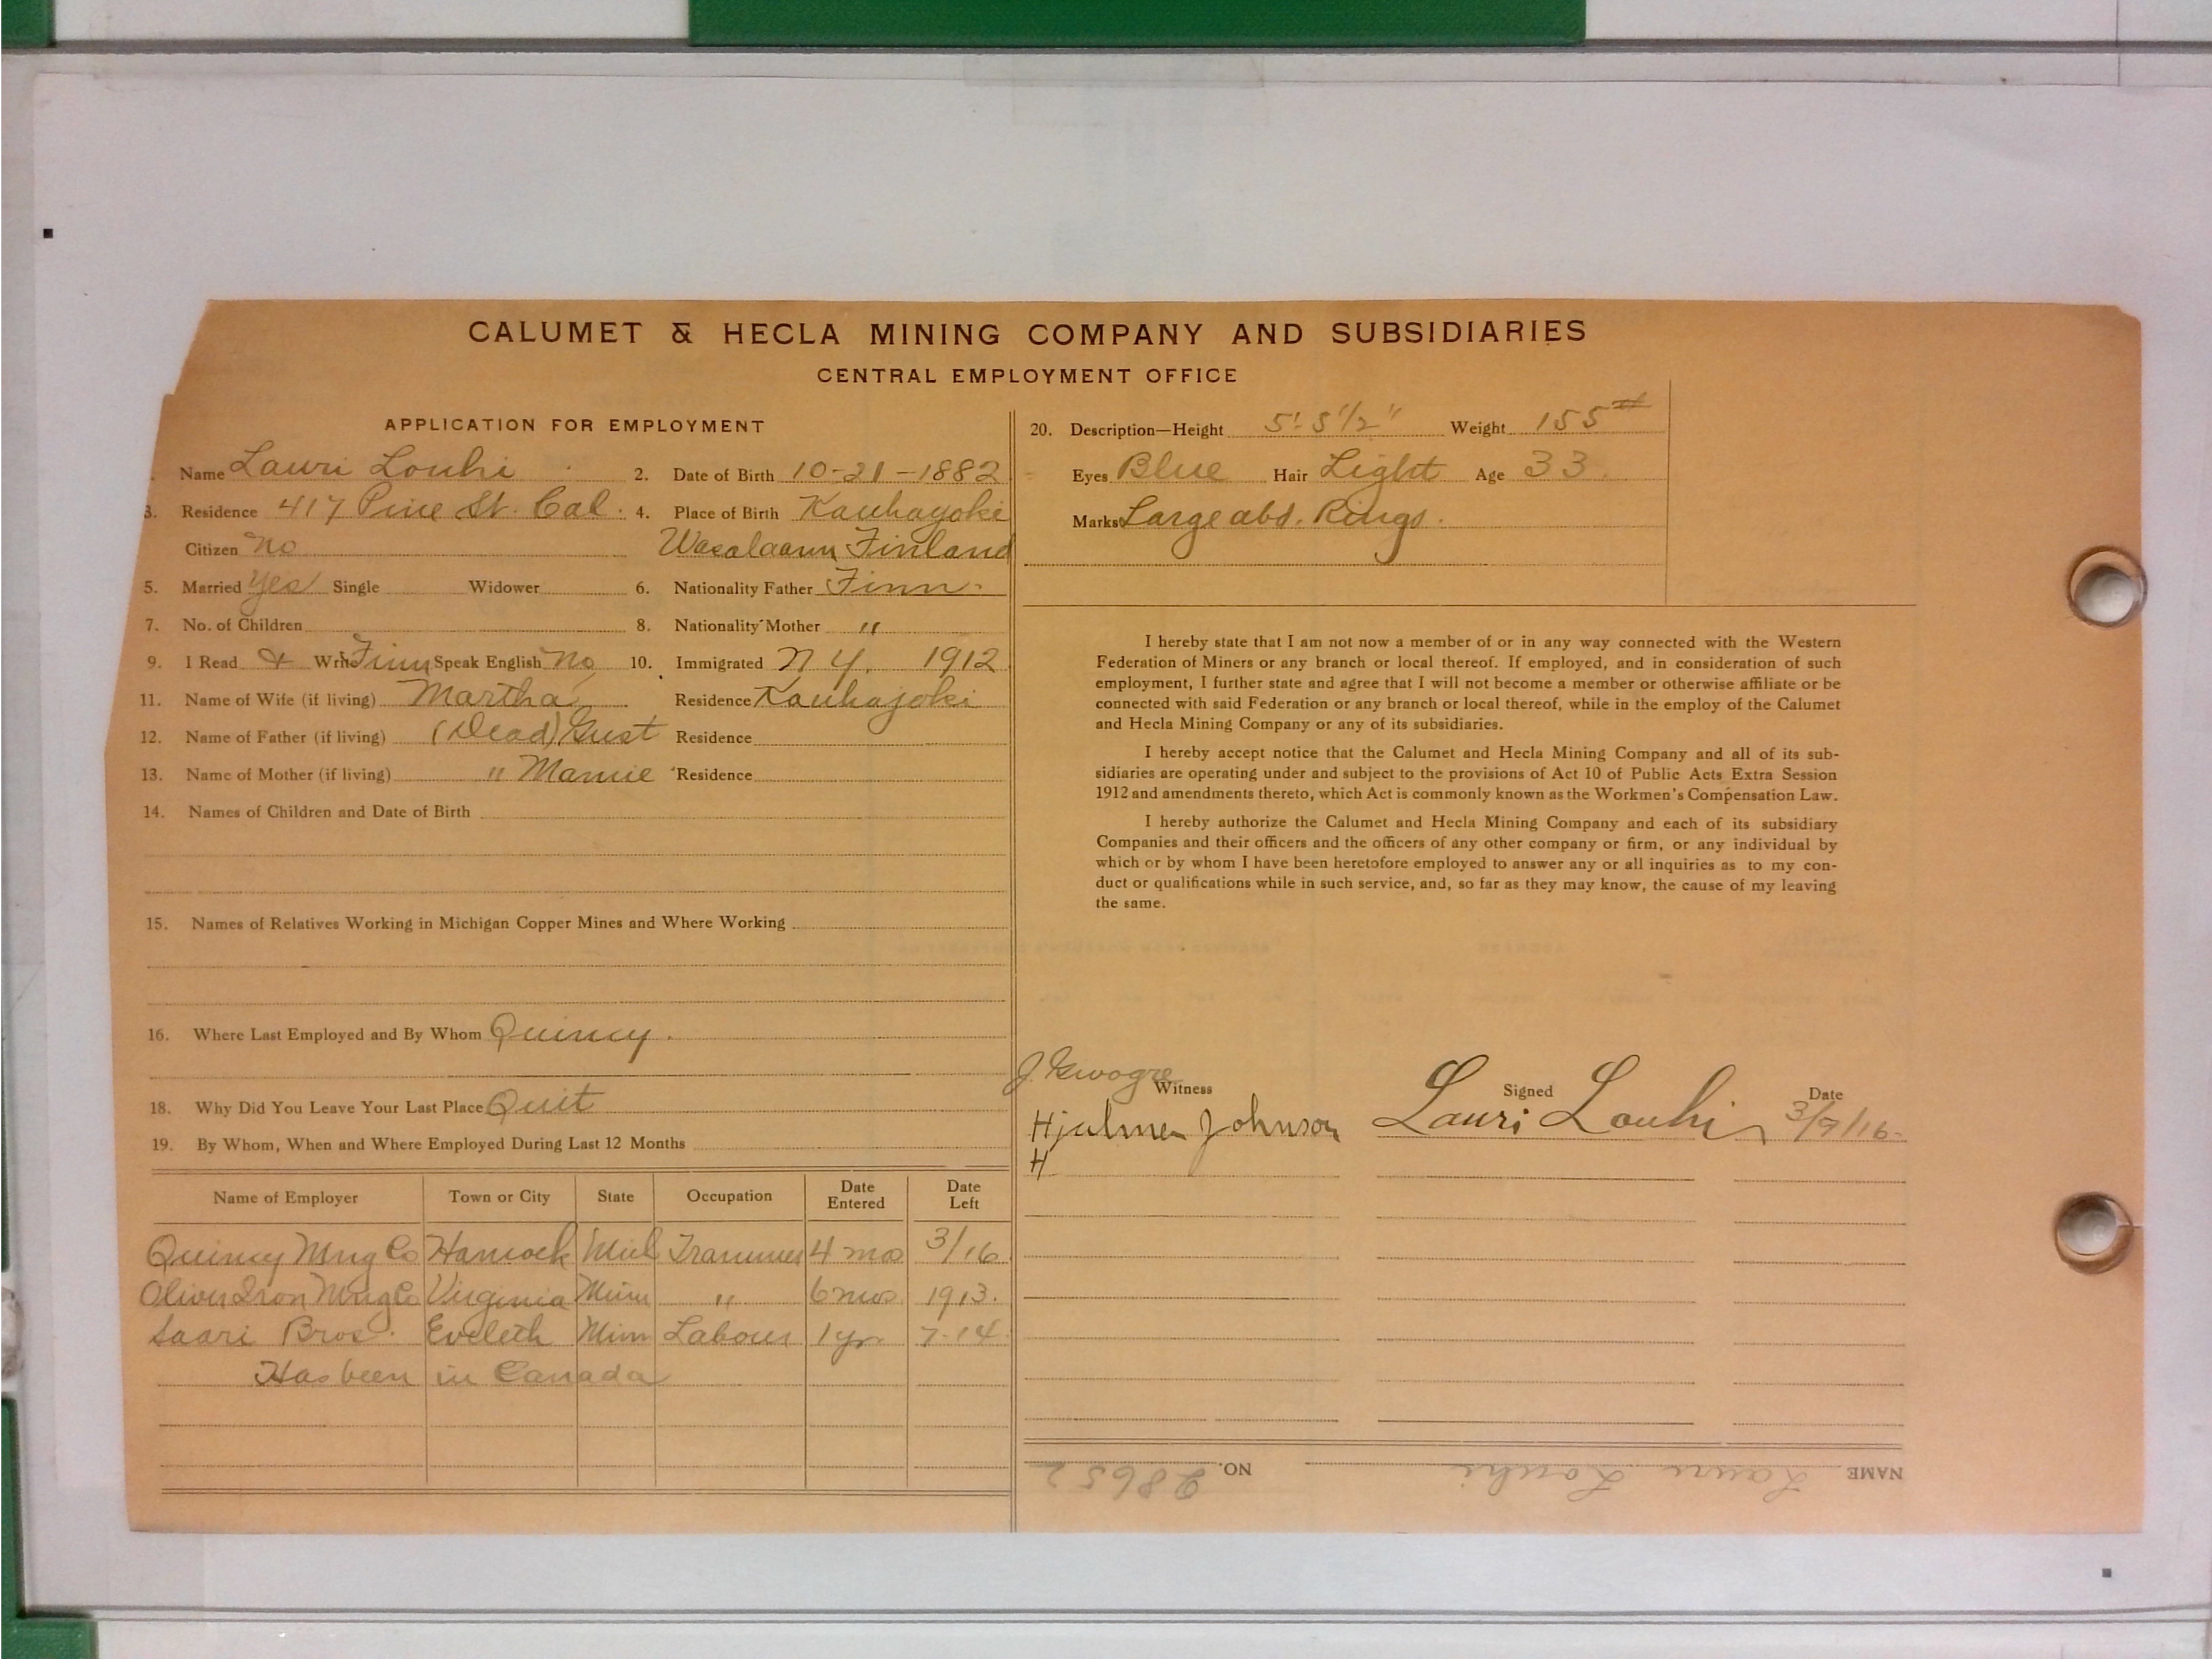 CALUMET & HECLA MINING COMPANY AND SUBSIDIARIES
CENTRAL EMPLOYMENT OFFICE
APPLICATION FOR EMPLOYMENT
Name Lauri Louhi 2. Date of Birth 10-21-1882
3. Residence 417 Pine St. Cal. 4. Place of Birth Kauhayoki
Citizen No Wasalaann Finland
5. Married Yes Single Widower 6. Nationality Father Finn
7. No. of Children 8. Nationality Mother "
9. I Read & Write Finn Speak English No 10. Immigrated N Y. 1912
11. Name of Wife (if living) Martha Residence Kauhajoki
12. Name of Father (if living) (Dead) Gust Residence
13. Name of Mother (if living) " Mamie Residence
14. Names of Children and Date of Birth
15. Names of Relatives Working in Michigan Copper Mines and Where Working
16. Where Last Employed and By Whom Quincy.
18. Why Did You Leave Your Last Place Quit
19. By Whom, When and Where Employed During Last 12 Months
Name of Employer Town or City State Occupation Date Entered Date Left
Quincy Mng Co Hancock Mich Trammer 4 mos 3/16
Oliver Iron Mng Co Virginia Minn " 6 mos 1913.
Saari Bros. Eveleth Minn Labour 1 yr. 7-14
Has been in Canada
20. Description—Height 5' 5 1/2" Weight 155#
Eyes Blue Hair Light Age 33
Marks Large abd. Rings.
I hereby state that I am not now a member of or in any way connected with the Western
Federation of Miners or any branch or local thereof. If employed, and in consideration of such
employment, I further state and agree that I will not become a member or otherwise affiliate or be
connected with said Federation or any branch or local thereof, while in the employ of the Calumet
and Hecla Mining Company or any of its subsidiaries.
I hereby accept notice that the Calumet and Hecla Mining Company and all of its sub-
sidiaries are operating under and subject to the provisions of Act 10 of Public Acts Extra Session
1912 and amendments thereto, which Act is commonly known as the Workmen's Compensation Law.
I hereby authorize the Calumet and Hecla Mining Company and each of its subsidiary
Companies and their officers and the officers of any other company or firm, or any individual by
which or by whom I have been heretofore employed to answer any or all inquiries as to my con-
duct or qualifications while in such service, and, so far as they may know, the cause of my leaving
the same.
Witness Signed Date
Hjalmer Johnson Lauri Louhi 3/9/16
H
NAME Lauri Louhi NO. 28652